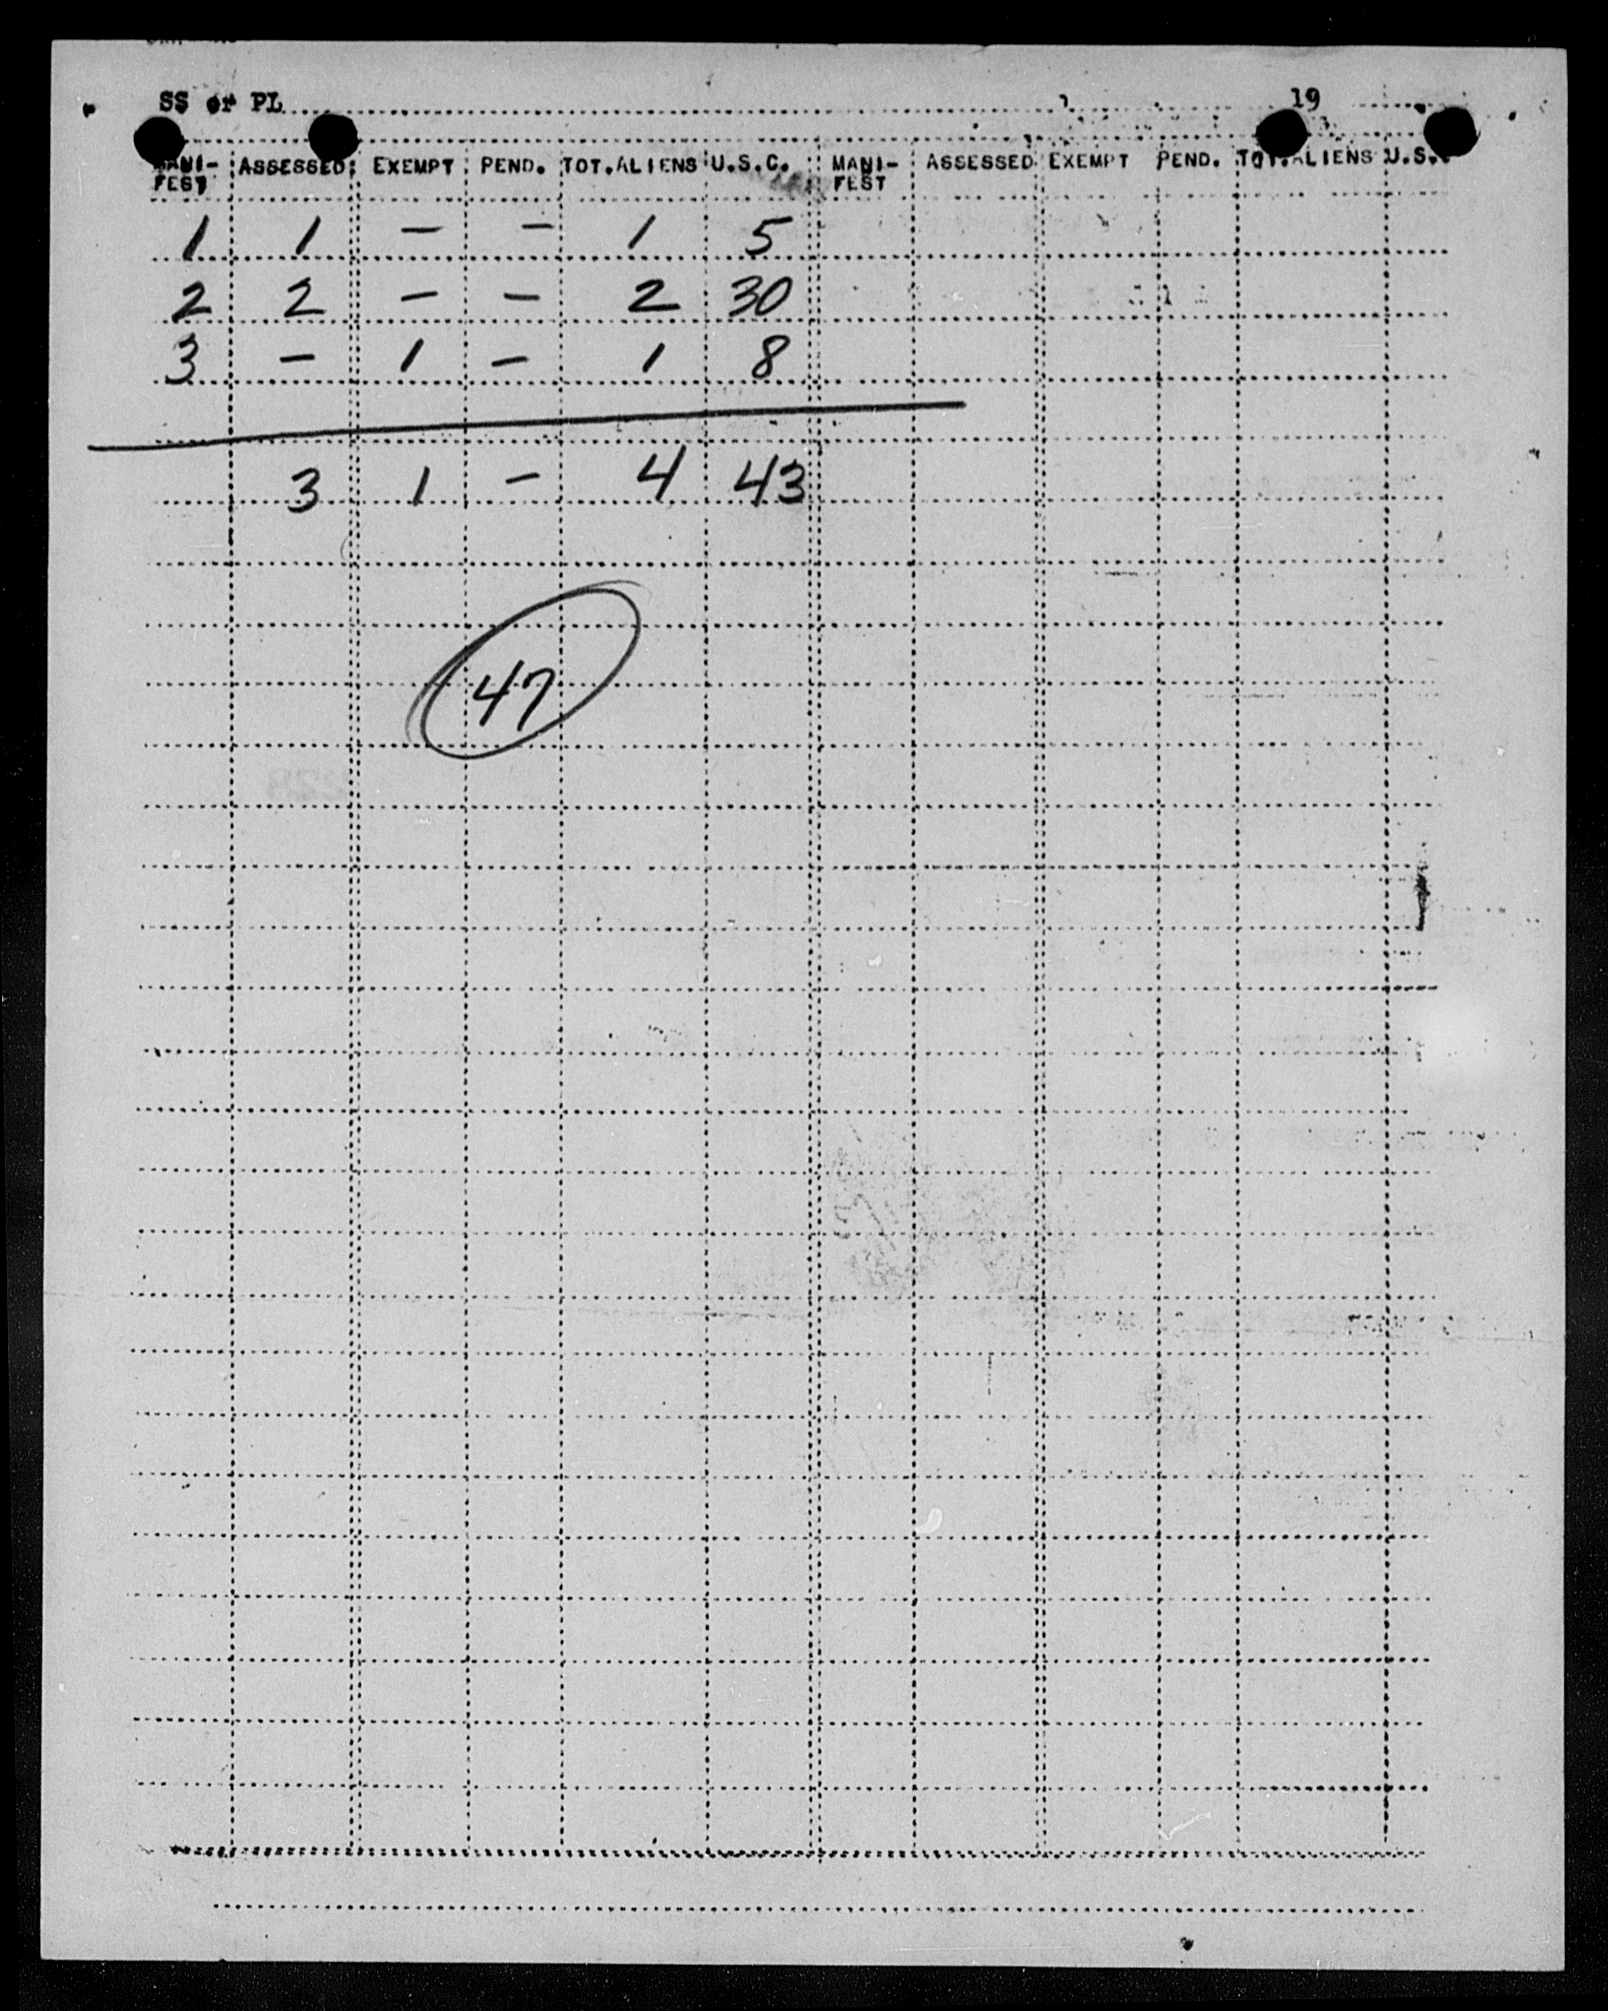 SS or PL 19
MANI- ASSESSED EXEMPT PEND. TOT.ALIENS U.S.C. MANI- ASSESSED EXEMPT PEND. TOT.ALIENS U.S.
FEST FEST
1 1 - - 1 5
2 2 - - 2 30
3 - 1 - 1 8
3 1 - 4 43
47